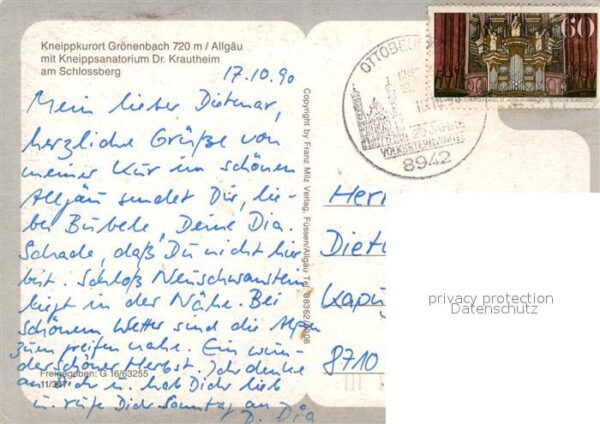 Kneippkurort Grönenbach 720 m / Allgäu
mit Kneippsanatorium Dr. Krautheim
am Schlossberg
17.10.90
Mein lieber Dietmar,
herzliche Grüße von
meiner Kur im schönen
Allgäu sendet Dir, lie-
ber Bubele, Deine Dia.
Schade, daß Du nicht hier
bist. Schloß Neuschwanstein
liegt in der Nähe. Bei
schönem Wetter sind die Alpen
zum greifen nahe. Ein wun-
derschöner Herbst. Ich denke
an Dich u. hab Dich lieb
u. rufe Dich Sonntag an
D. Dia
Freigegeben: G 16/63255
11/347
Copyright by Franz Milz Verlag, Füssen/Allgäu Tel. 08362
OTTOBEU
8942
60
Herr
Dietm
Kapuz
8710
privacy protection
Datenschutz